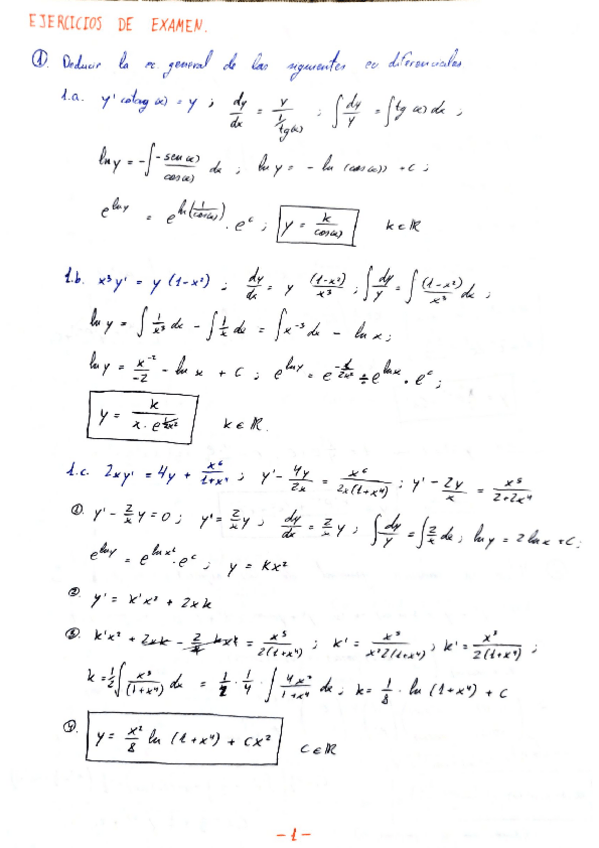 EJERCICIOS DE EXAMEN.
① Deducir la ec. general de las siguientes ec diferenciales
1.a. y' cotag(x) = y ; dy/dx = y/(1/tg(x)) ; ∫dy/y = ∫tg(x) dx ;
ln y = -∫ -sen(x)/cos(x) dx ; ln y = - ln (cos(x)) + C ;
e^(ln y) = e^(ln(1/cos(x))) · e^c ; y = k/cos(x) k ∈ ℝ
1.b. x³y' = y (1-x²) ; dy/dx = y (1-x²)/x³ ; ∫dy/y = ∫(1-x²)/x³ dx ;
ln y = ∫ 1/x³ dx - ∫ 1/x dx = ∫x⁻³ dx - ln x ;
ln y = x⁻²/-2 - ln x + C ; e^(ln y) = e^(-1/2x²) ÷ e^(ln x) · e^c ;
y = k/(x · e^(1/2x²)) k ∈ ℝ.
1.c. 2xy' = 4y + x⁶/(1+x⁴) ; y' - 4y/2x = x⁶/(2x(1+x⁴)) ; y' - 2y/x = x⁵/(2+2x⁴)
①. y' - 2/x y = 0 ; y' = 2/x y ; dy/dx = 2/x y ; ∫dy/y = ∫2/x dx ; ln y = 2 ln x + C ;
e^(ln y) = e^(ln x²) · e^c ; y = Kx²
②. y' = k'x² + 2xk
③. k'x² + 2xk - 2/x kx² = x⁵/(2(1+x⁴)) ; k' = x⁵/(x²2(1+x⁴)) ; k' = x³/(2(1+x⁴)) ;
k = 1/2 ∫ x³/(1+x⁴) dx = 1/2 · 1/4 · ∫ 4x³/(1+x⁴) dx ; k = 1/8 · ln (1+x⁴) + C
④. y = x²/8 ln (1+x⁴) + Cx² C ∈ ℝ
-1-